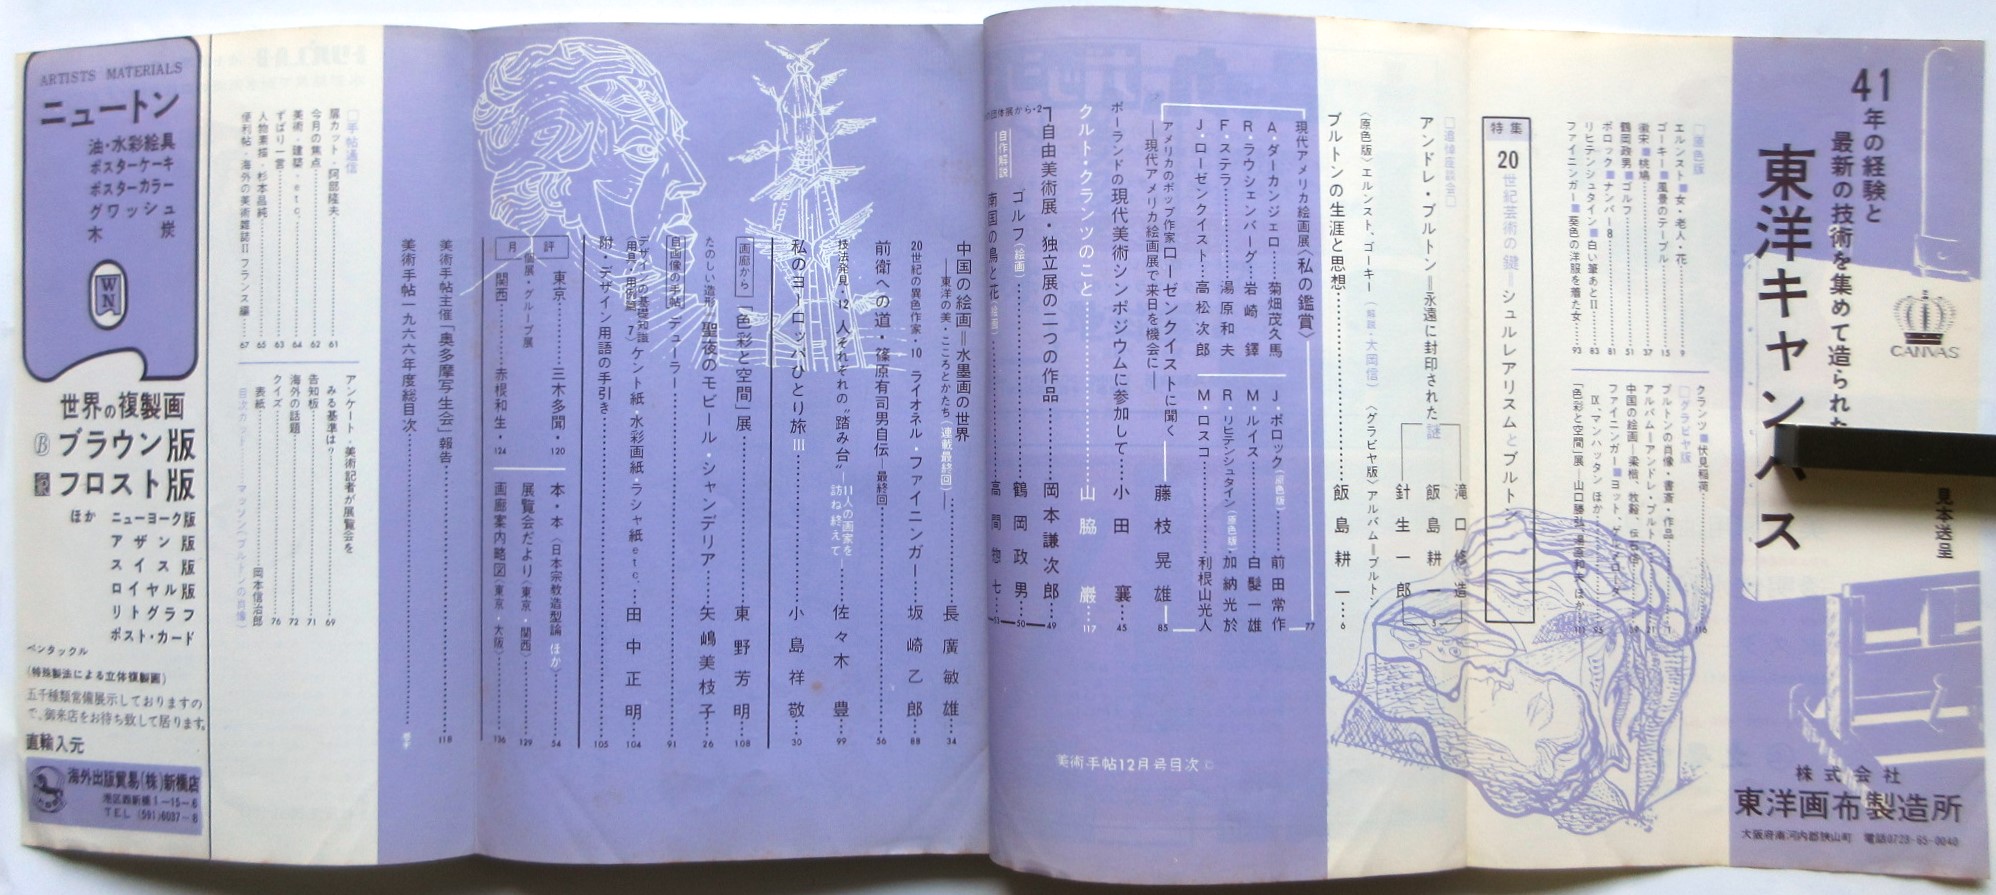 41年の経験と
最新の技術を集めて造られた
東洋キャンバス
CANVAS
見本送呈
株式会社
東洋画布製造所
大阪府南河内郡狭山町 電話0729-65-0040
□原色版
エルンスト■女・老人・花……9
ゴーキー■風景のテーブル……15
徽宗■桃鳩……37
鶴岡政男■ゴルフ……51
ポロック■ナンバー8……81
リヒテンシュタイン■白い筆あとII……83
ファイニンガー■葵色の洋服を着た女……93
クランツ■伏見稲荷……116
□グラビヤ版
ブルトンの肖像・書斎・作品
アルバム―アンドレ・ブルトン……21
中国の絵画―梁楷、牧谿
ファイニンガー■ヨット
IX、マンハッタン ほか……95
「色彩と空間」展―山口勝弘、湯原和夫 ほか……111
特集
20世紀芸術の鍵＝シュルレアリスムとブルトン
□追悼座談会□
アンドレ・ブルトン＝永遠に封印された謎
滝口修造
飯島耕一
針生一郎
5
〈原色版〉エルンスト、ゴーキー（解説・大岡信）〈グラビヤ版〉アルバム＝ブルトン
ブルトンの生涯と思想……飯島耕一……6
現代アメリカ絵画展〈私の鑑賞〉
A・ダーカンジェロ……菊畑茂久馬
R・ラウシェンバーグ…岩崎鐸
F・ステラ……湯原和夫
J・ローゼンクイスト…高松次郎
J・ポロック（原色版）……前田常作
M・ルイス……白髪一雄
R・リヒテンシュタイン（原色版）…加納光於
M・ロスコ……利根山光人
77
アメリカのポップ作家ローゼンクイストに聞く――藤枝晃雄……85
―現代アメリカ絵画展で来日を機会に―
ポーランドの現代美術シンポジウムに参加して……小田襄……45
クルト・クランツのこと……山脇巌……117
団体展から・2
自由美術展・独立展の二つの作品……岡本謙次郎……49
自作解説
ゴルフ（絵画）……鶴岡政男……50
南国の鳥と花（絵画）……高間惣七……53
美術手帖12月号目次
中国の絵画＝水墨画の世界……長廣敏雄……34
――東洋の美・こころとかたち（連載最終回）――
20世紀の異色作家・10 ライオネル・ファイニンガー……坂崎乙郎……88
前衛への道・篠原有司男自伝―最終回……56
技法発見・12 人それぞれの〝踏み台〟―11人の画家を訪ね終えて―……佐々木豊……99
私のヨーロッパひとり旅III……小島祥敬……30
画廊から 「色彩と空間」展……東野芳明……108
たのしい造形 聖夜のモビール・シャンデリア……矢嶋美枝子……26
自画像の手帖 デューラー……91
デザインの基礎知識〈用具・用例篇〉7 ケント紙・水彩画紙・ラシャ紙etc……田中正明……104
附・デザイン用語の手引き……105
月評
東京……三木多聞・120
個展・グループ展
関西……赤根和生・124
本・本〈日本宗教造型論 ほか〉……54
展覧会だより〈東京・関西〉……129
画廊案内略図〈東京・大阪〉……136
美術手帖主催「奥多摩写生会」報告……118
美術手帖一九六六年度総目次……巻末
□手帖通信
扉カット・阿部隆夫……61
今月の焦点……62
美術・建築・etc……64
ずばり一言……63
人物素描・杉本昌純……65
便利帖・海外の美術雑誌II フランス編……67
アンケート・美術記者が展覧会を
みる基準は？……69
告知板……71
海外の話題……72
クイズ……76
表紙……岡本信治郎
目次カット……マッソン（ブルトンの肖像）
ARTISTS MATERIALS
ニュートン
油・水彩絵具
ポスターケーキ
ポスターカラー
グワッシュ
木炭
WN
世界の複製画
ブラウン版
フロスト版
ほか ニューヨーク版
アザン版
スイス版
ロイヤル版
リトグラフ
ポスト・カード
ペンタックル
（特殊製法による立体複製画）
五千種類常備展示しておりますの
で、御来店をお待ち致して居ります。
直輸入元
海外出版貿易（株）新橋店
港区西新橋1-15-6
TEL (591)6037-8